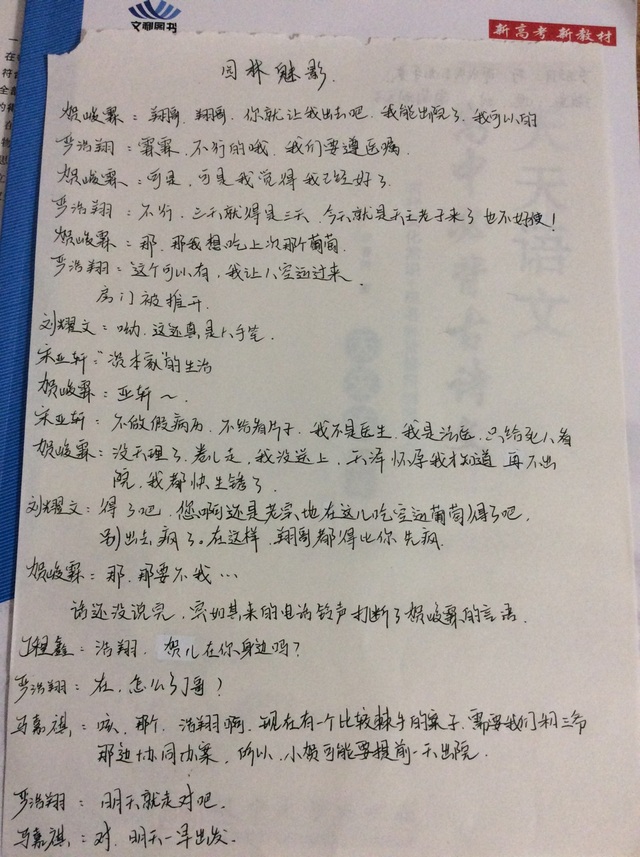 文都图书
新高考 新教材
园林魅影.
贺峻霖：翔哥、翔哥，你就让我出去吧，我能出院了，我可以的
严浩翔：霖霖，不行的哦，我们要遵医嘱.
贺峻霖：可是，可是我觉得我已经好了.
严浩翔：不行，三天就得是三天，今天就是天王老子来了也不好使！
贺峻霖：那，那我想吃上次那个葡萄.
严浩翔：这个可以有，我让人空运过来.
房门被推开.
刘耀文：呦，这还真是大手笔.
宋亚轩："资本家"的生活
贺峻霖：亚轩～.
宋亚轩：不做假病历，不给看片子，我不是医生，我是法医，只给死人看
贺峻霖：没天理了，卷儿走，我没送上，天泽怀孕我才知道，再不出
院，我都快生锈了.
刘耀文：得了吧，您啊还是老实地在这儿吃空运葡萄得了吧，
别出去疯了。在这样，翔哥都得比你先疯.
贺峻霖：那，那要不我…
话还没说完，突如其来的电话铃声打断了贺峻霖的言语.
丁程鑫：浩翔，贺儿在你身边吗？
严浩翔：在，怎么了丁哥？
马嘉祺：咳，那个，浩翔啊，现在有一个比较棘手的案子，需要我们和三部
那边协同办案，所以，小贺可能要提前一天出院.
严浩翔：明天就走对吧.
马嘉祺：对，明天一早出发.